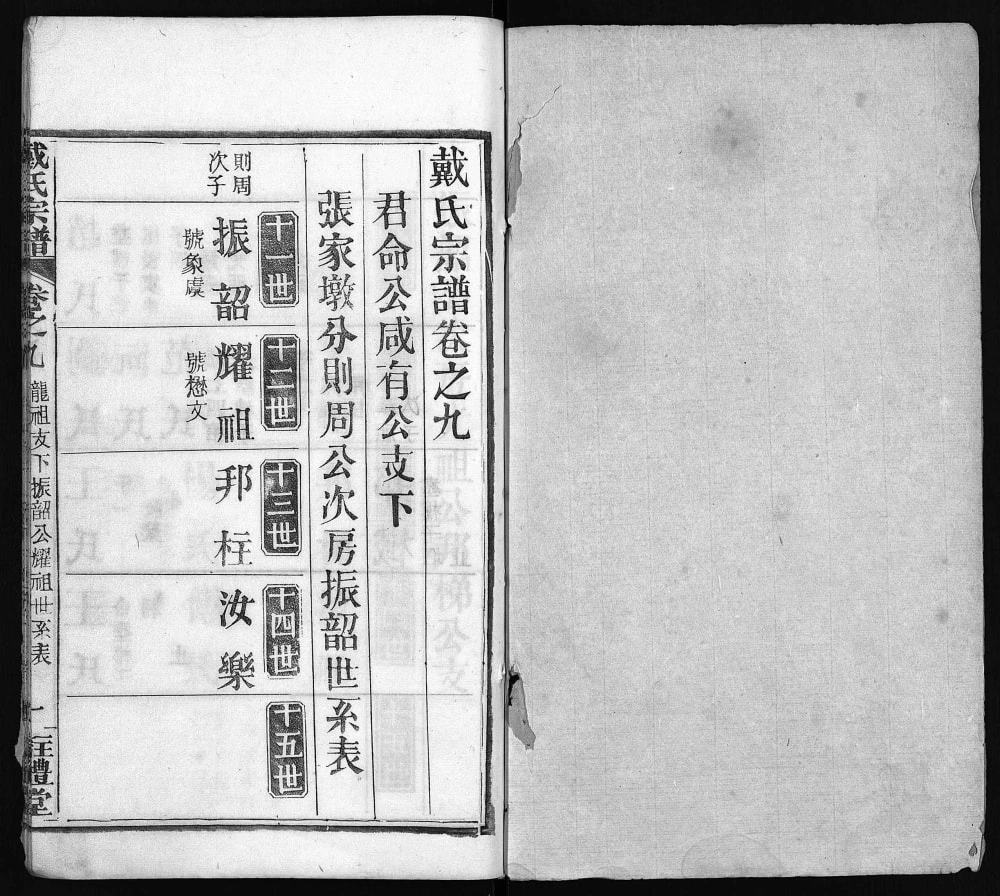 戴氏宗譜卷之九
君命公咸有公支下
張家墩分則周公次房振韶世系表
十一世
十二世
十三世
十四世
十五世
則周
次子
振韶
耀祖
邦柱
汝樂
號象虞
號懋文
戴氏宗譜
卷之九
龍祖支下振韶公耀祖世系表
一
注禮堂